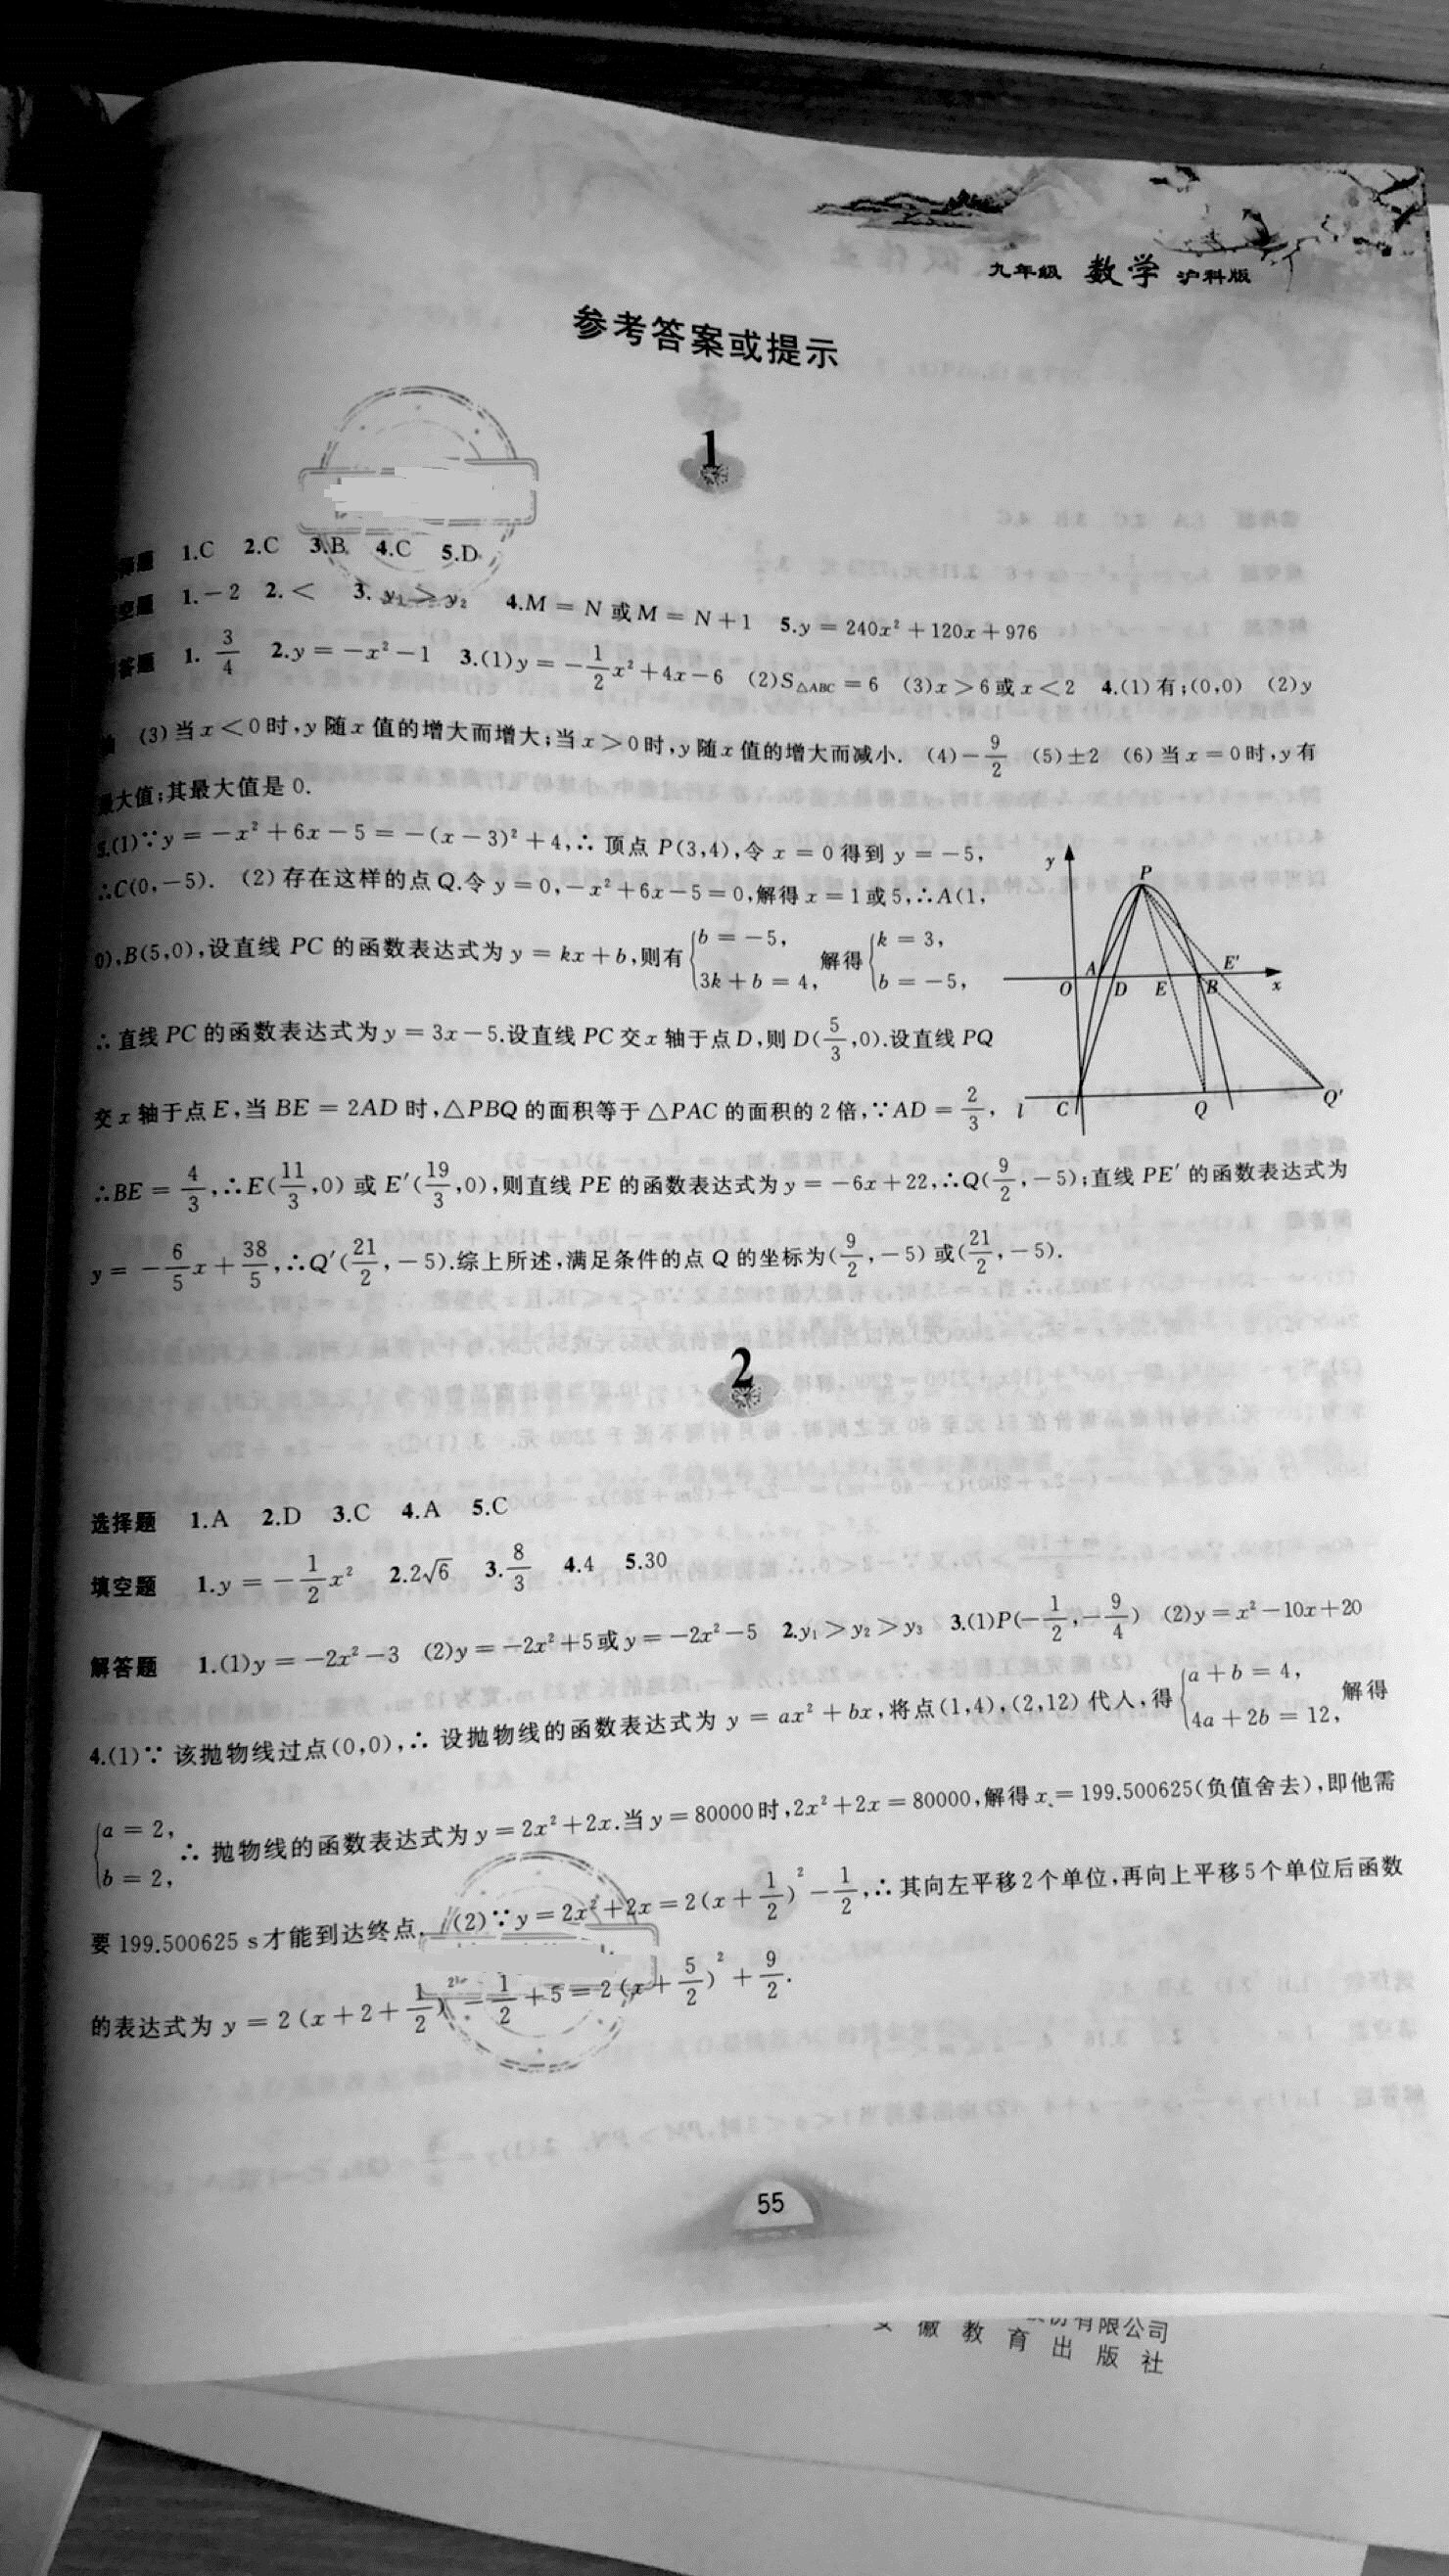 九年级 数学 沪科版
参考答案或提示
1
择题 1.C 2.C 3.B 4.C 5.D
空题 1.－2 2.＜ 3. y₁＞y₂ 4.M＝N或M＝N＋1 5.y＝240x²＋120x＋976
答题 1. 3/4 2.y＝－x²－1 3.(1)y＝－1/2x²＋4x－6 (2)S△ABC＝6 (3)x＞6或x＜2 4.(1)有;(0,0) (2)y
(3)当x＜0时,y随x值的增大而增大;当x＞0时,y随x值的增大而减小. (4)－9/2 (5)±2 (6)当x＝0时,y有
最大值;其最大值是0.
5.(1)∵y＝－x²＋6x－5＝－(x－3)²＋4,∴顶点P(3,4),令x＝0得到y＝－5,
∴C(0,－5). (2)存在这样的点Q.令y＝0,－x²＋6x－5＝0,解得x＝1或5,∴A(1,
0),B(5,0),设直线PC的函数表达式为y＝kx＋b,则有{b＝－5, 3k＋b＝4, 解得{k＝3, b＝－5,
∴直线PC的函数表达式为y＝3x－5.设直线PC交x轴于点D,则D(5/3,0).设直线PQ
交x轴于点E,当BE＝2AD时,△PBQ的面积等于△PAC的面积的2倍,∵AD＝2/3,
∴BE＝4/3,∴E(11/3,0)或E′(19/3,0),则直线PE的函数表达式为y＝－6x＋22,∴Q(9/2,－5);直线PE′的函数表达式为
y＝－6/5x＋38/5,∴Q′(21/2,－5).综上所述,满足条件的点Q的坐标为(9/2,－5)或(21/2,－5).
y
P
A E′
O D E B x
l C Q Q′
2
选择题 1.A 2.D 3.C 4.A 5.C
填空题 1.y＝－1/2x² 2.2√6 3.8/3 4.4 5.30
解答题 1.(1)y＝－2x²－3 (2)y＝－2x²＋5或y＝－2x²－5 2.y₁＞y₂＞y₃ 3.(1)P(－1/2,－9/4) (2)y＝x²－10x＋20
4.(1)∵该抛物线过点(0,0),∴设抛物线的函数表达式为y＝ax²＋bx,将点(1,4),(2,12)代人,得{a＋b＝4, 4a＋2b＝12, 解得
{a＝2, b＝2, ∴抛物线的函数表达式为y＝2x²＋2x.当y＝80000时,2x²＋2x＝80000,解得x＝199.500625(负值舍去),即他需
要199.500625 s才能到达终点. (2)∵y＝2x²＋2x＝2(x＋1/2)²－1/2,∴其向左平移2个单位,再向上平移5个单位后函数
的表达式为y＝2(x＋2＋1/2)²－1/2＋5＝2(x＋5/2)²＋9/2.
55
有限公司
徽教育出版社